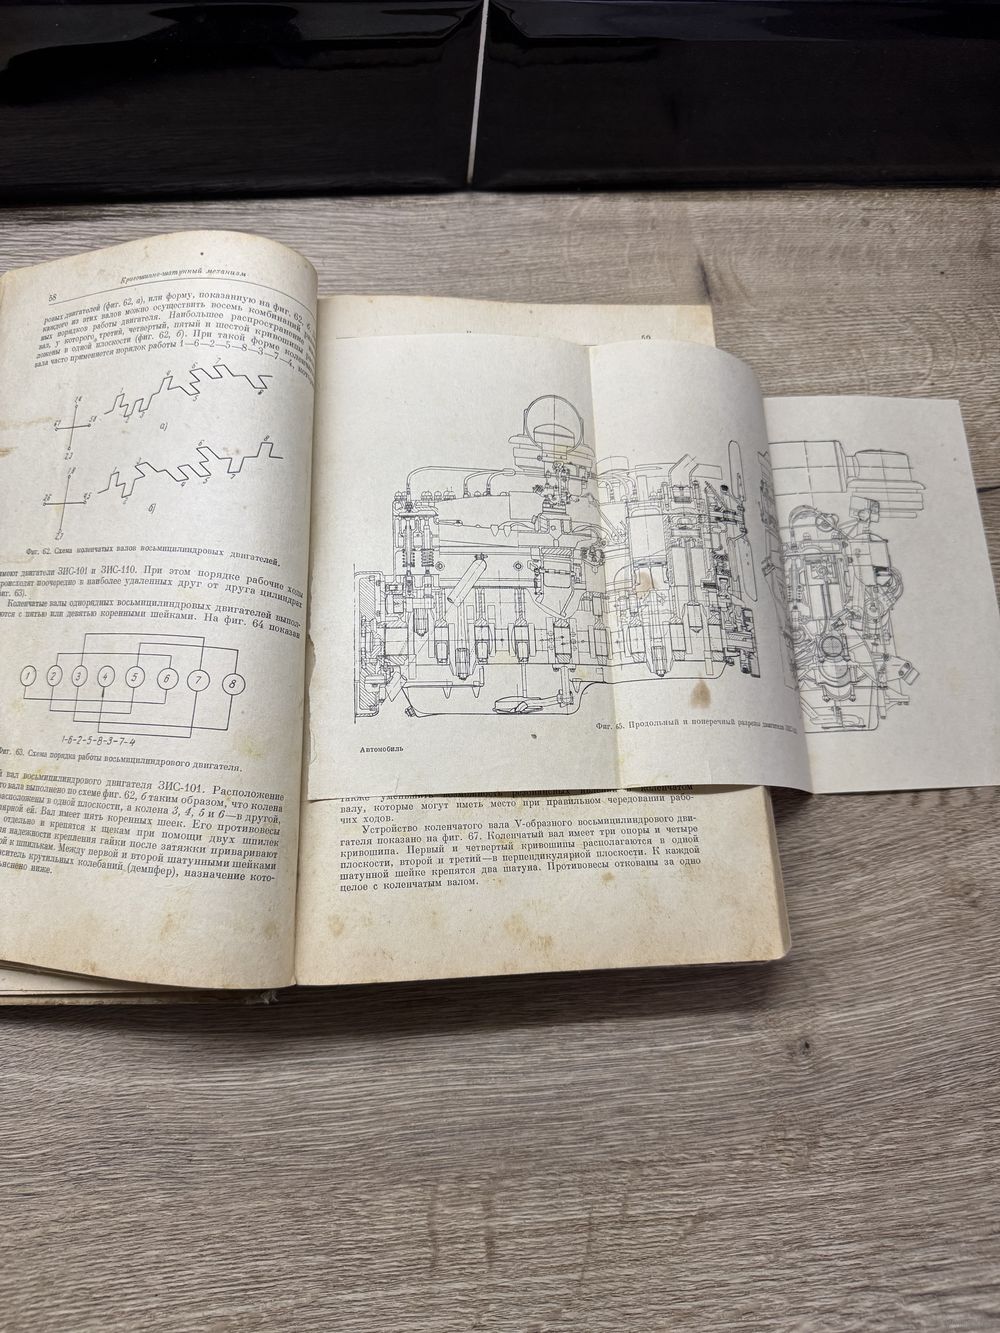 58
Кривошипно-шатунный механизм
ровых двигателей (фиг. 62, а), или форму, показанную на фиг. 62, б.
каждого из этих валов можно осуществить восемь комбинаций
ных порядков работы двигателя. Наибольшее распространение
вал, у которого третий, четвертый, пятый и шестой кривошипы
ложены в одной плоскости (фиг. 62, б). При такой форме коленчатого
вала часто применяется порядок работы 1—6—2—5—8—3—7—4,
а)
б)
Фиг. 62. Схема коленчатых валов восьмицилиндровых двигателей.
имеют двигатели ЗИС-101 и ЗИС-110. При этом порядке рабочие ходы
происходят поочередно в наиболее удаленных друг от друга цилиндрах
фиг. 63).
Коленчатые валы однорядных восьмицилиндровых двигателей выпол-
яются с пятью или девятью коренными шейками. На фиг. 64 показан
1 2 3 4 5 6 7 8
1-6-2-5-8-3-7-4
Фиг. 63. Схема порядка работы восьмицилиндрового двигателя.
й вал восьмицилиндрового двигателя ЗИС-101. Расположение
того вала выполнено по схеме фиг. 62, б таким образом, что колена
расположены в одной плоскости, а колена 3, 4, 5 и 6—в другой,
лярной ей. Вал имеет пять коренных шеек. Его противовесы
отдельно и крепятся к щекам при помощи двух шпилек
ля надежности крепления гайки после затяжки приваривают
ой к шпилькам. Между первой и второй шатунными шейками
аситель крутильных колебаний (демпфер), назначение кото-
ъяснено ниже.
59
Фиг. 65. Продольный и поперечный разрезы двигателя
Автомобиль
также уменьшить
коленчатом
валу, которые могут иметь место при правильном чередовании рабо-
чих ходов.
Устройство коленчатого вала V-образного восьмицилиндрового дви-
гателя показано на фиг. 67. Коленчатый вал имеет три опоры и четыре
кривошипа. Первый и четвертый кривошипы располагаются в одной
плоскости, второй и третий—в перпендикулярной плоскости. К каждой
шатунной шейке крепятся два шатуна. Противовесы откованы за одно
целое с коленчатым валом.